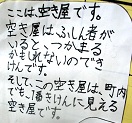 ここは、空き屋です。
空き屋はふしん者が
いると、つかまる
かもしれないのでき
けんです。
そして、この空き屋は、町内
でも1番きけんに見える
空き屋です。